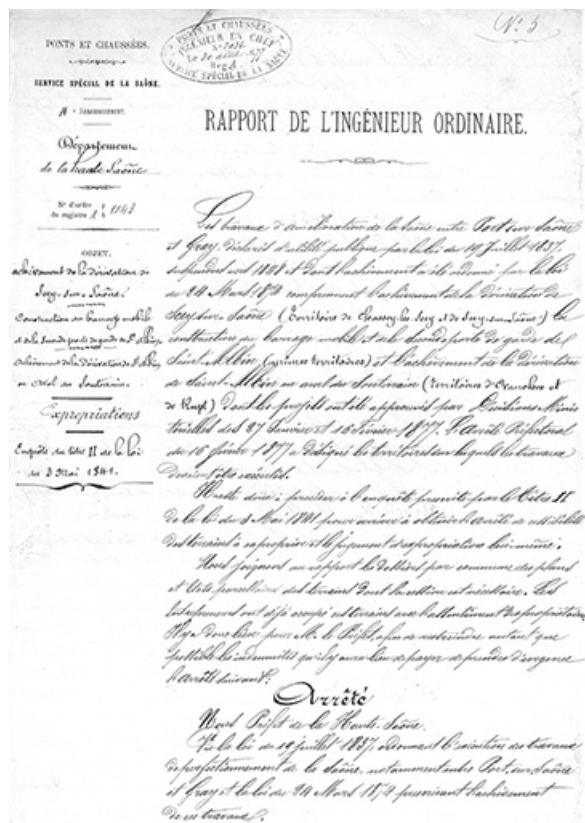 N° 5
PONTS ET CHAUSSÉES
INGÉNIEUR EN CHEF
SERVICE SPÉCIAL DE LA SAÔNE
PONTS ET CHAUSSÉES.
SERVICE SPÉCIAL DE LA SAÔNE.
ARRONDISSEMENT.
Département
de la Haute Saône
N° d'ordre
du registre 1143
OBJET.
achèvement de la dérivation de
Scey-sur-Saône.
Construction du barrage mobile
et de la porte de garde de St Albin
achèvement de la dérivation de St Albin
en aval du Souterrain.
Expropriations
Enquête du titre II de la loi
du 3 Mai 1841.
RAPPORT DE L'INGÉNIEUR ORDINAIRE.
Les travaux d'amélioration de la Saône entre Port sur Saône
et Gray, déclarés d'utilité publique par la loi du 19 Juillet 1837,
suspendus et dont l'achèvement a été ordonné par la loi
du 24 Mars 1874 comprennent l'achèvement de la dérivation de
Scey sur Saône (territoire de Chassey les Scey et de Scey sur Saône) la
construction du barrage mobile et de la porte de garde de
Saint-Albin (mêmes territoires) et l'achèvement de la dérivation
de Saint-Albin en aval du Souterrain (territoires d'Ovanches et
de Rupt) dont les projets ont été approuvés par Décisions Minis
térielles des 27 Janvier et Février 1877. L'arrêté Préfectoral
du 16 février 1877 a désigné les territoires sur lesquels les travaux
doivent être exécutés.
Il reste donc à procéder à l'enquête prescrite par le titre II
de la loi du 3 Mai 1841 pour arriver à obtenir l'arrêté de cessibilité
des terrains à exproprier et le jugement d'expropriation lui-même.
Nous joignons au rapport le dossier par commune des plans
et états parcellaires des terrains dont la cession est nécessaire. Les
entrepreneurs ont déjà occupé ces terrains avec l'assentiment des propriétaires
Il y a donc lieu pour M. le Préfet, afin de restreindre autant que
possible les indemnités qu'il y aura lieu de payer de prendre d'urgence
l'arrêté suivant:
Arrêté
Nous Préfet de la Haute-Saône.
Vu la loi du 19 juillet 1837 ordonnant l'exécution des travaux
de perfectionnement de la Saône, notamment entre Port-sur-Saône
et Gray et la loi du 24 Mars 1874 prescrivant l'achèvement
de ces travaux.